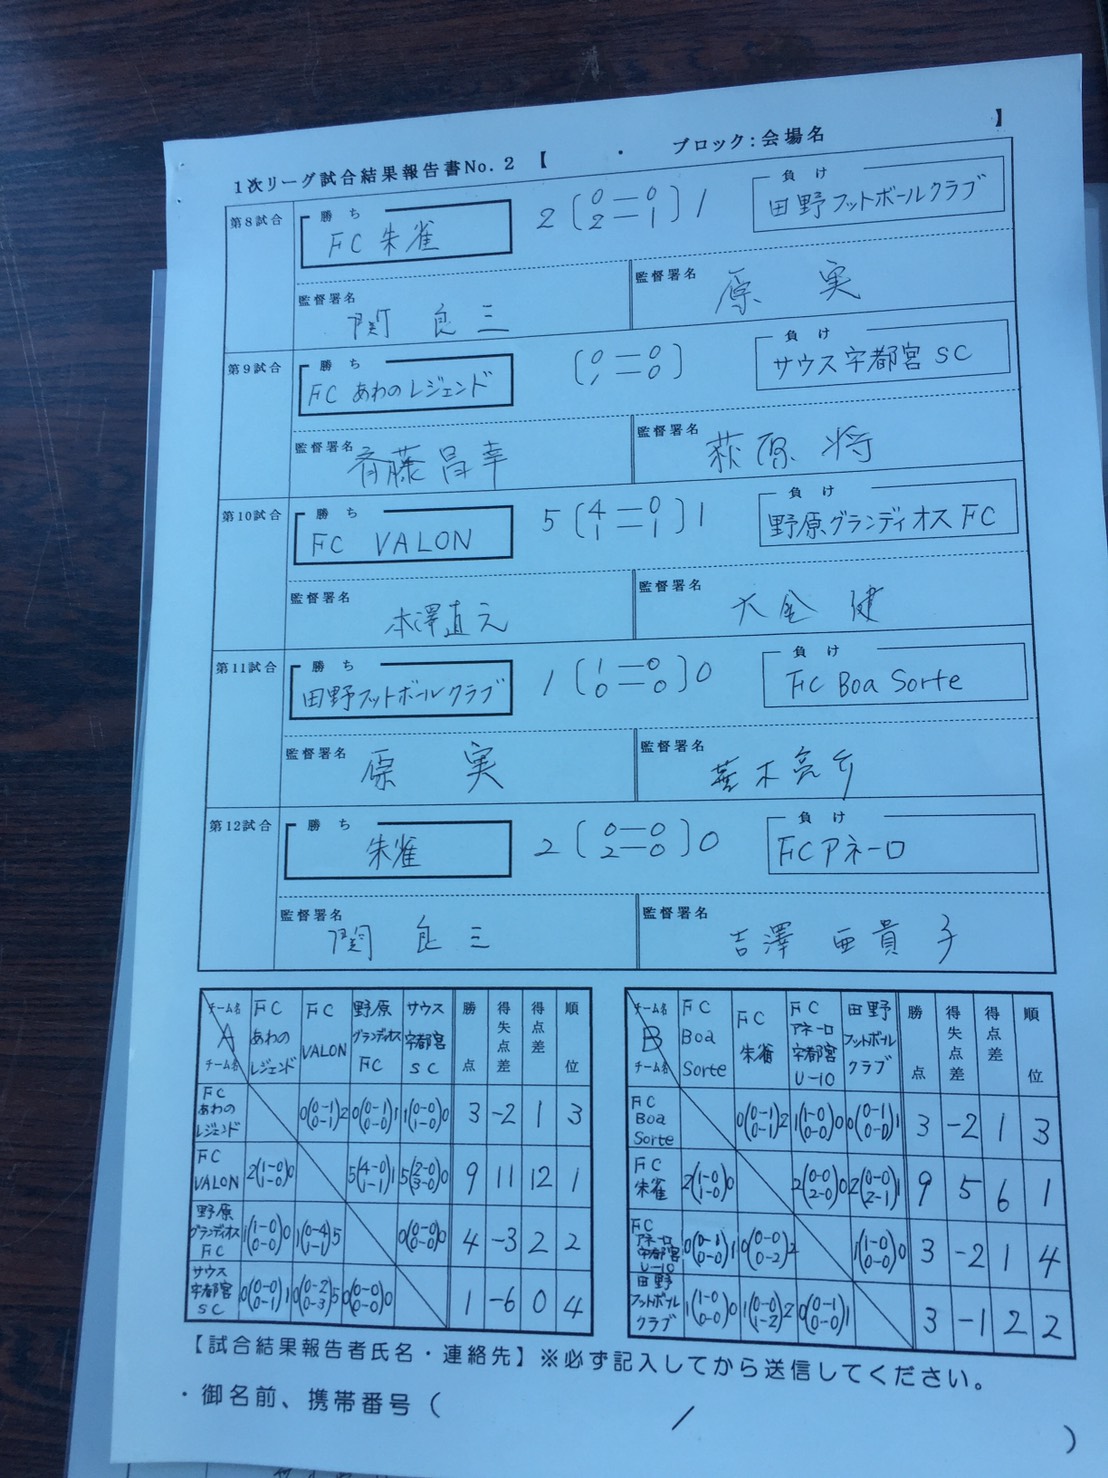 1次リーグ試合結果報告書No.2 【 ・ ブロック:会場名 】
第8試合 勝ち FC 朱雀 2 (0-0 2-1) 1 負け 田野フットボールクラブ
監督署名 関 良三 監督署名 原 実
第9試合 勝ち FC あわのレジェンド (0-0 1-0) 負け サウス宇都宮SC
監督署名 斉藤昌幸 監督署名 萩原 将
第10試合 勝ち FC VALON 5 (4-0 1-1) 1 負け 野原グランディオスFC
監督署名 本澤直元 監督署名 大金 健
第11試合 勝ち 田野フットボールクラブ 1 (1-0 0-0) 0 負け FC Boa Sorte
監督署名 原 実 監督署名
第12試合 勝ち 朱雀 2 (0-0 2-0) 0 負け FCアネーロ
監督署名 関 良三 監督署名 吉澤 亜貴子
チーム名 A チーム名 FC あわの レジェンド FC VALON 野原 グランディオス FC サウス 宇都宮 SC 勝点 得失点差 得点差 順位
FC あわの レジェンド 0(0-1 0-1)2 0(0-1 0-0)1 1(0-0 1-0)0 3 -2 1 3
FC VALON 2(1-0 1-0)0 5(4-0 1-1)1 5(2-0 3-0)0 9 11 12 1
野原 グランディオス FC 1(1-0 0-0)0 1(0-4 1-1)5 0(0-0 0-0)0 4 -3 2 2
サウス 宇都宮 SC 0(0-0 0-1)1 0(0-2 0-3)5 0(0-0 0-0)0 1 -6 0 4
チーム名 B チーム名 FC Boa Sorte FC 朱雀 FC アネーロ 宇都宮 U-10 田野 フットボール クラブ 勝点 得失点差 得点差 順位
FC Boa Sorte 0(0-1 0-1)2 1(1-0 0-0)0 0(0-1 0-0)1 3 -2 1 3
FC 朱雀 2(1-0 1-0)0 2(0-0 2-0)0 2(0-0 2-1)1 9 5 6 1
FC アネーロ 宇都宮 U-10 0(0-1 0-0)1 0(0-0 0-2)2 1(1-0 0-0)0 3 -2 1 4
田野 フットボール クラブ 1(1-0 0-0)0 1(0-0 1-2)2 0(0-1 0-0)1 3 -1 2 2
【試合結果報告者氏名・連絡先】※必ず記入してから送信してください。
・御名前、携帯番号( / )